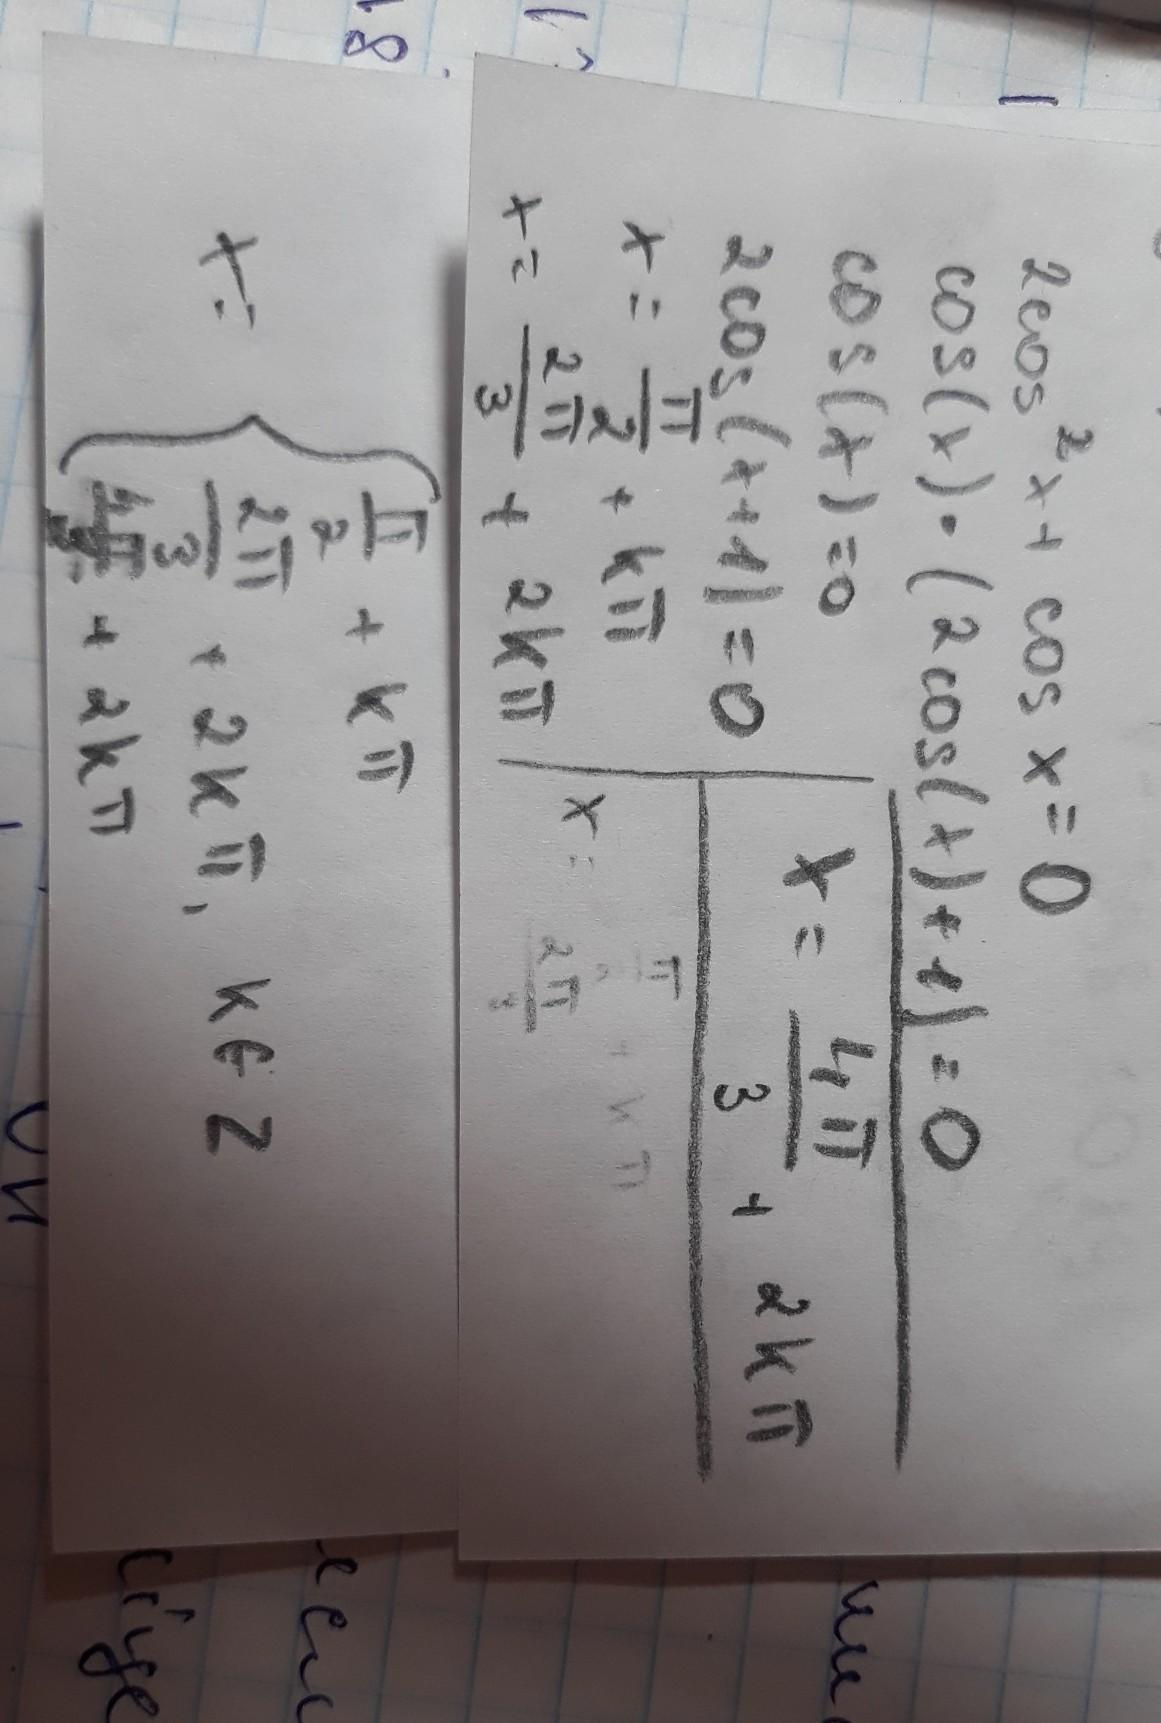 2cos²x+ cos x = 0
cos(x)·(2cos(x)+1)=0
cos(x)=0
2cos(x+1)=0
x = π/2 + kπ
x = 2π/3 + 2kπ
x = 4π/3 + 2kπ
x =
π/2 + kπ
2π/3
x =
{
π/2 + kπ
2π/3 + 2kπ, k∈Z
4π/3 + 2kπ